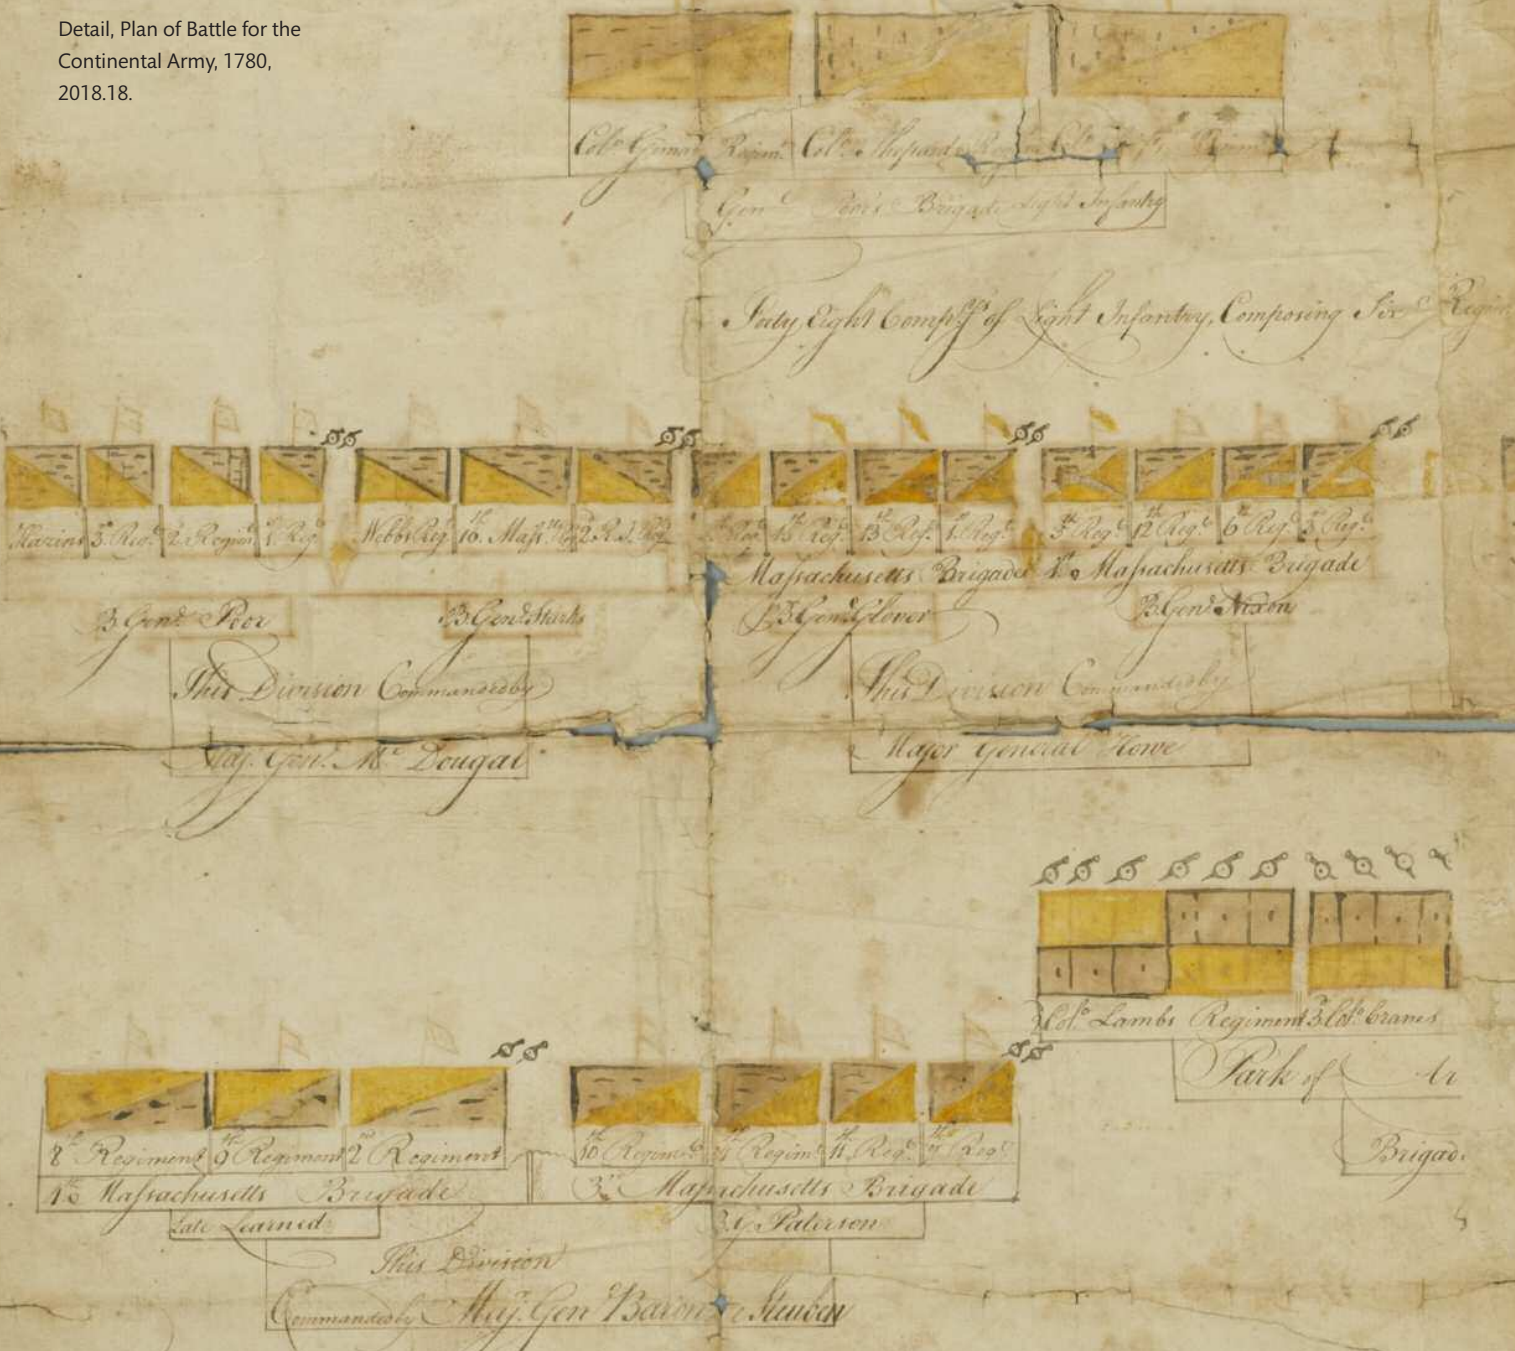 Detail, Plan of Battle for the
Continental Army, 1780,
2018.18.
Colo Regimt. Colo Shepards
Genl Poor's Brigade Light Infantry
Forty Eight Compys of Light Infantry, Composing Six Regim
Hazins 3d Regt. 2 Regimt. 1 Regt.
Webbs Regt 16th Mass. 2 R.I. Reg
Regt 15th Regt. 13th Regt. 1 Regt.
5th Regt 12th Regt. 6th Regt. 3 Regt.
Massachusetts Brigade
Massachusetts Brigade
B Genl. Poor
B. Genl. Starks
B. Genl. Glover
B. Genl. Nixon
This Division Commanded by
Maj. Genl. Mc Dougal
This Division Commanded by
Major General Howe
Colo. Lambs Regiment 3 Colo. Cranes
Park of Ar
Brigad.
8th Regiment 9th Regiment 2nd Regiment
10th Regimt. Regimt. 11th Regt. 7th Regt.
Massachusetts Brigade
3 Massachusetts Brigade
Late Learned
B.G. Paterson
This Division
Commanded by Maj. Genl Baron Steuben